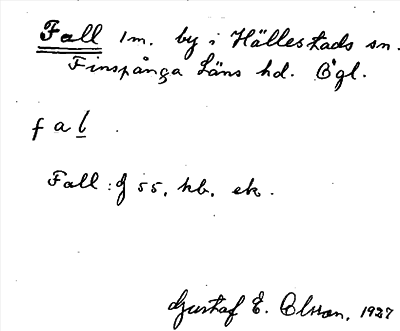 Fall 1m. by i Hällestads sn.
Finspånga Läns hd. Ögl.
fal .
Fall : J 55. hb. ek.
Gustaf E. Olsson. 1927